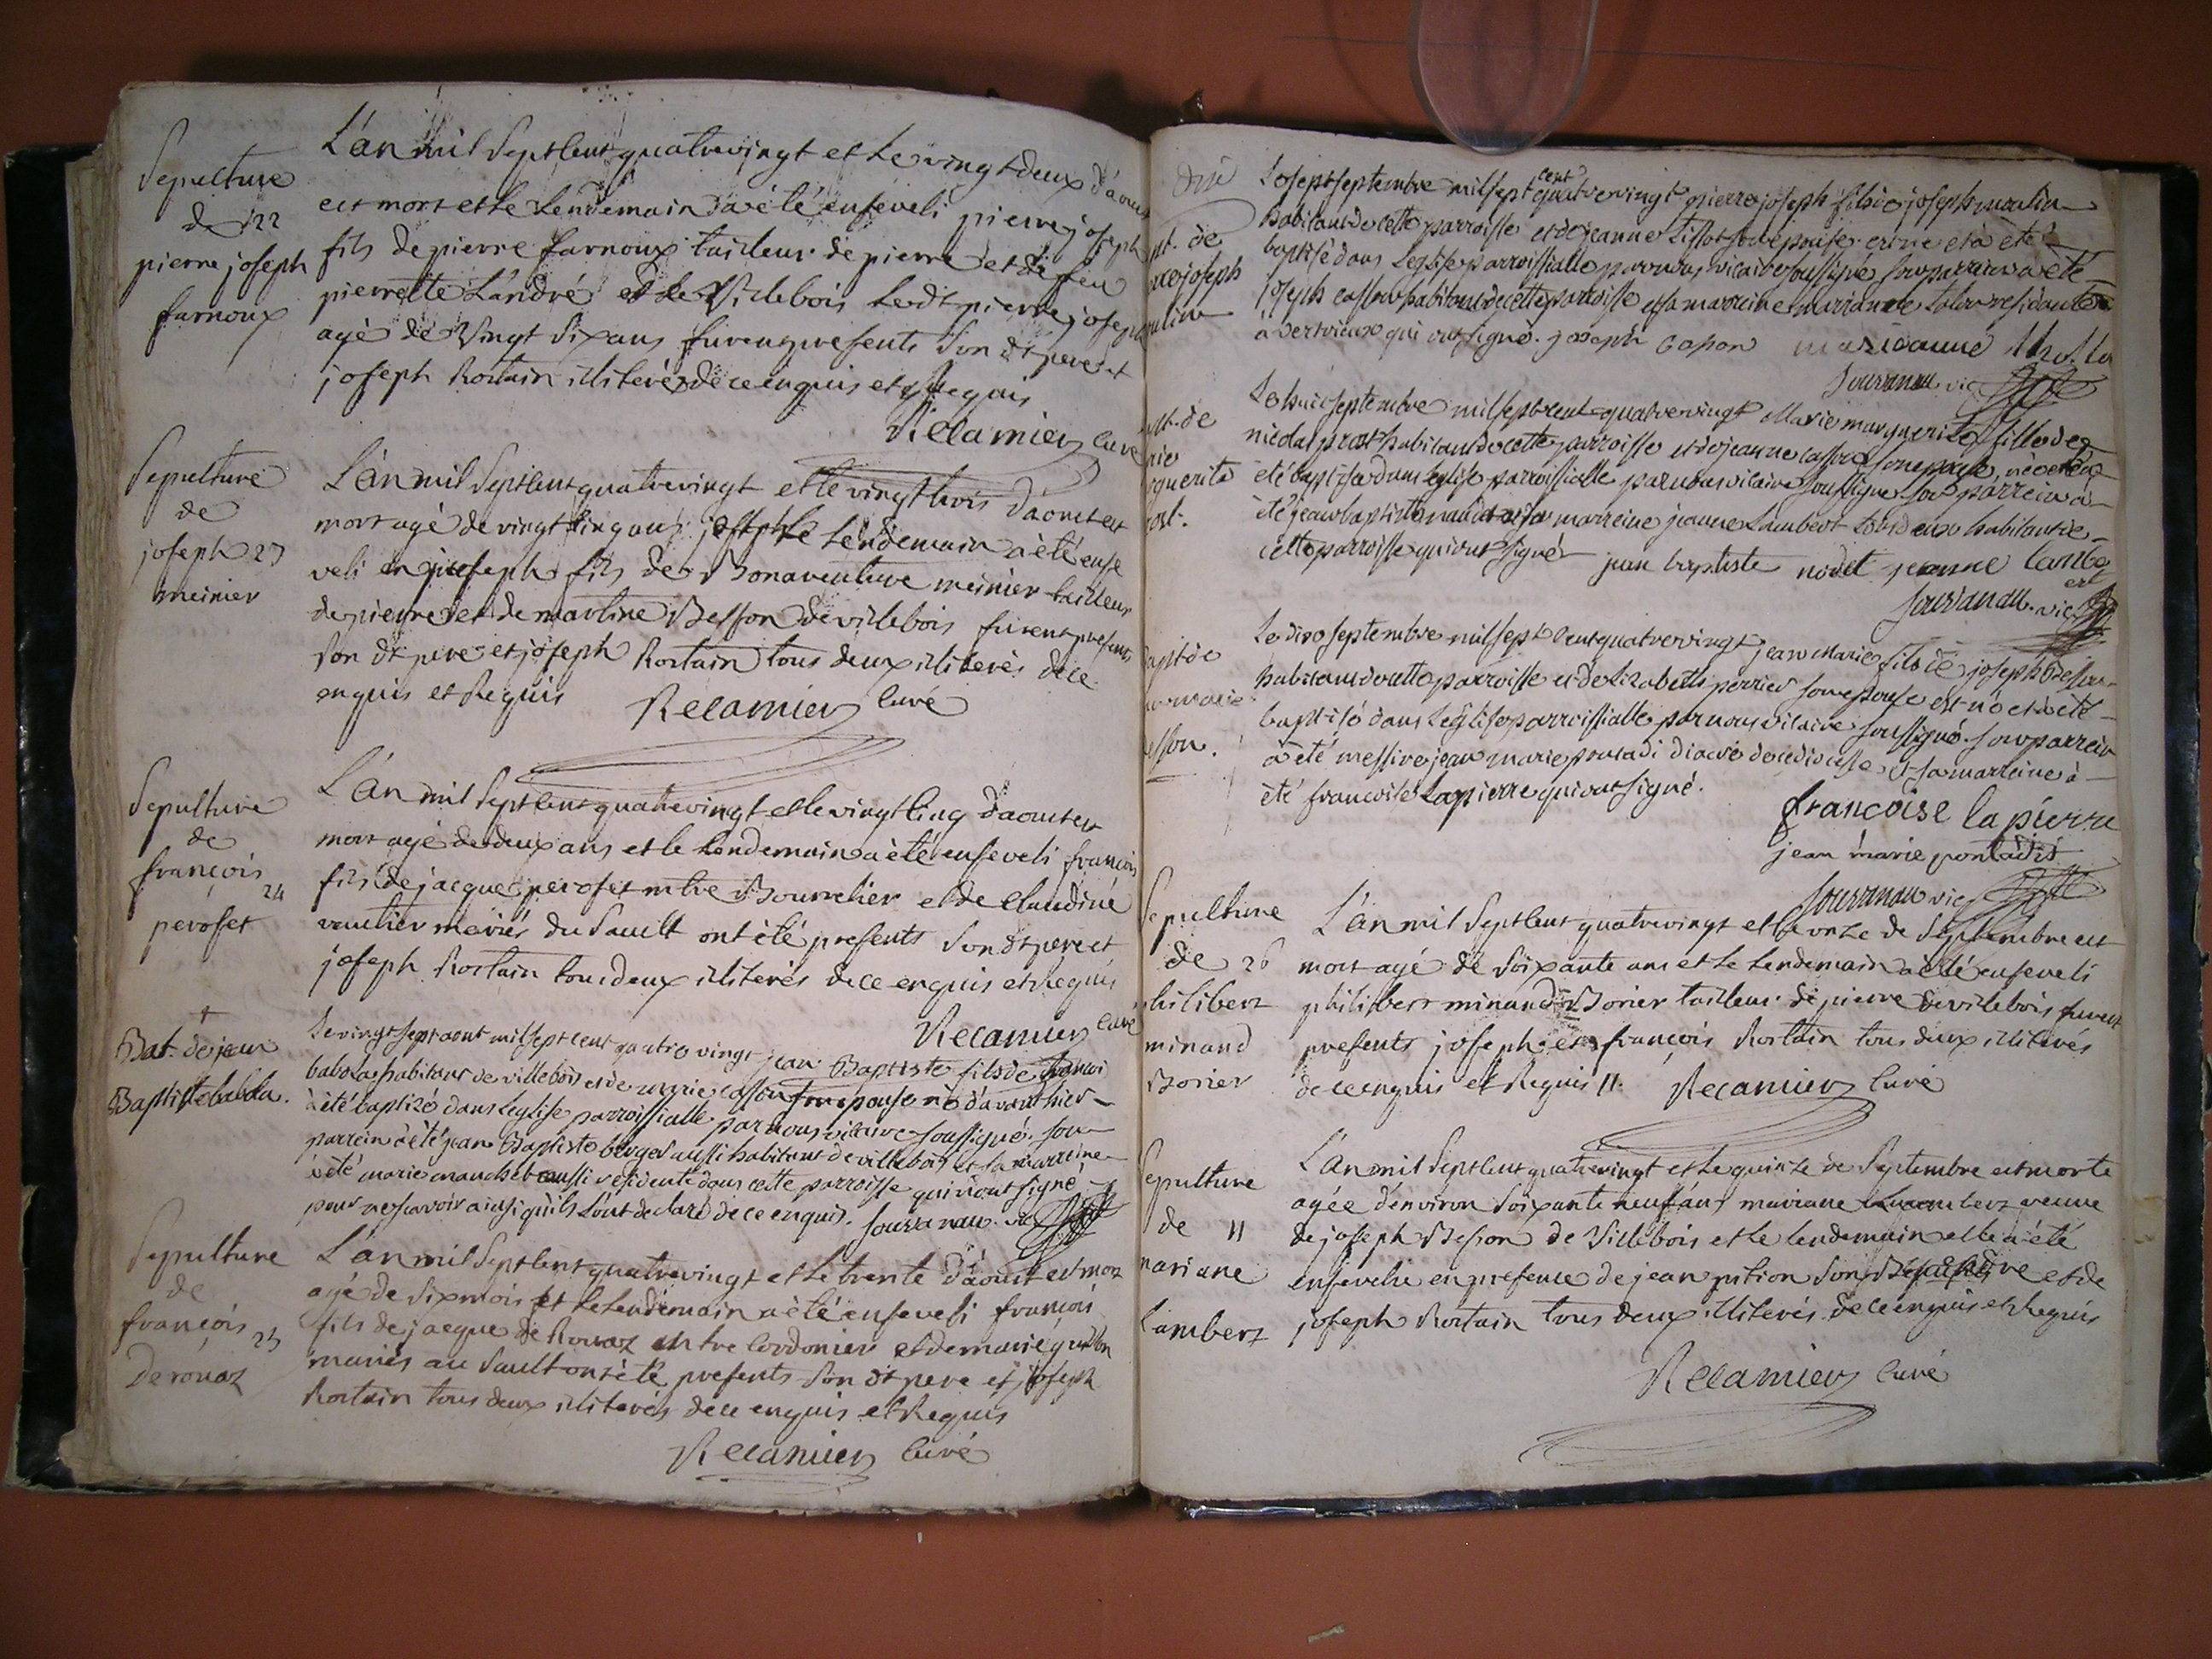 Sepulture
de 22
pierre joseph
farnoux
L'an mil Septcent quatrevingt et le vingt deux d'aoust
est mort et le Lendemain a été enseveli pierre joseph
fils de pierre farnoux tailleur de pierre et de feu
pierrette L'andré de Villebois Ledt pierre joseph
agé de Vingt Six ans furent presents Son dt pere et
joseph Rostain illiterés de ce enquis et Requis
Recamier Curé
Sepulture
de
joseph 23
meinier
L'an mil Septcent quatrevingt et le vingt trois d'aoust est
mort agé de vingt cinq ans et Le Lendemain a été ense
veli joseph fils de Bonaventure meinier tailleur
de pierre et de marline Besson de villebois furent presents
Son dt pere et joseph Rostain tous deux illiterés de ce
enquis et Requis Recamier Curé
Sepulture
de
françois
24
peroset
L'an mil Septcent quatrevingt et le vingt Cinq d'aoust est
mort agé de deux ans et le Lendemain a été enseveli françois
fils de jacque peroset mtre Bourrelier et de Claudine
vautier mariés du Sault ont été presents Son dt pere et
joseph Rostain tous deux illiterés de ce enquis et Requis
Recamier Curé
Bat. de jean
Baptiste babola.
Le vingt sept aout mil sept cent quatre vingt jean Baptiste fils de francoi
babola habitant de villebois et de marie caston son epouse né d'avant hier
a été baptizé dans leglise parroissialle par nous vicaire soussigné. son
parrein a été jean Baptiste berger aussi habitant de villebois et sa marreine
a été marie manchet aussi residente dans cette parroisse qui n'ont signé
pour ne scavoir ainsi qu'ils l'ont declaré de ce enquis. Jouvanau. vic
Sepulture
de
françois
25
Derouaz
L'an mil Septcent quatrevingt et le trente d'aoust est mort
agé de Six mois et le Lendemain a été enseveli françois
fils de jacque de Rouaz mtre Cordonier et de marie
mariés au Sault ont été presents Son dt pere et joseph
Rostain tous deux illiterés de ce enquis et Requis
Recamier Curé
pt. de
joseph
Le sept septembre mil sept cent quatrevingt pierre joseph fils de joseph moulin
habitant de cette parroisse et de jeanne Tissot son epouse est né et a eté
baptisé dans Leglise parroissialle par nous vicaire soussigné son parrein a été
joseph caston habitant de cette parroisse et sa marreine marianne residante
a vertrieux qui ont signé. joseph Cason marianne
Jouvanau vic
pt. de
guerite
Le huit septembre mil sept cent quatrevingt Marie marguerite fille de
nicolas prost habitant de cette parroisse et de jeanne caston son epouse née et a
eté baptisée dans leglise parroissialle par nous vicaire soussigné son parrein a
été jean baptiste naudet et sa marreine jeanne Lambert tous deux habitants de
cette parroisse qui ont signé jean baptiste nodet jeanne lambe
ert
Jouvanau. vic
apt de
sson.
Le dix septembre mil sept cent quatrevingt jean Marie fils de joseph Besson
habitant de cette parroisse et de Elizabeth perrier son epouse est né et a été
baptisé dans Leglise parroissialle par nous vicaire soussigné. son parrein
a été messire jean marie diacre de ce diocesse et sa marreine a
été francoise Lapierre qui ont signé.
francoise la pierre
jean marie
Jouvanau vic
Sepulture
de 26
philibert
minand
Borier
L'an mil Septcent quatrevingt et le onze de Septembre est
mort agé de Soixante ans et le Lendemain a été enseveli
philibert minand Borier tailleur de pierre de villebois furent
presents joseph et françois Rostain tous deux illiterés
de ce enquis et Requis Recamier Curé
Sepulture
de
mariane
Lambert
L'an mil Septcent quatrevingt et le quinze de Septembre est morte
agée d'environ Soixante neuf ans mariane Lambert veuve
de joseph Besson de Villebois et le Lendemain elle a été
ensevelie en presence de jean et de
joseph Rostain tous deux illiterés de ce enquis et Requis
Recamier Curé